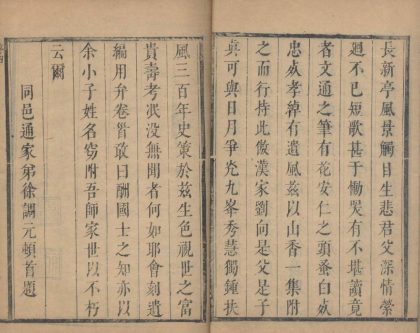 長新亭風景觸目生悲君父深情縈
廻不已短歌甚于慟哭有不堪讀竟
者文通之筆有花安仁之頭蚤白炎
忠炎孝綽有遺風茲以山香一集附
之而行持此傲漢家劉向是父是子
真可與日月爭光九峯秀慧獨鍾扶
風三百年史策於茲生色視世之富
貴壽考泯沒無聞者何如耶會刻遺
編用弁卷首敢曰酬國士之知亦以
余小子姓名竊附吾師家世以不朽
云爾
同邑通家弟徐調元頓首題